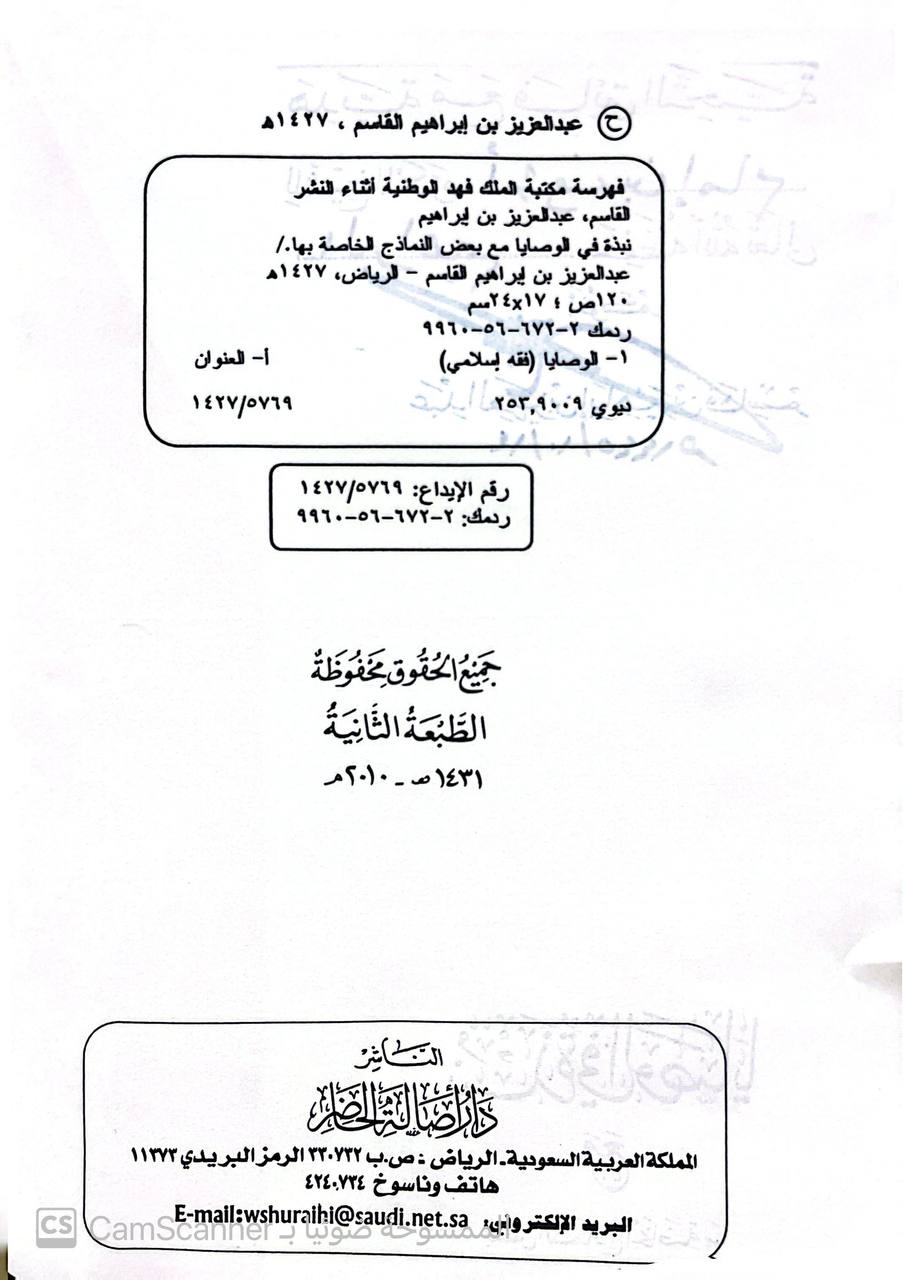 ح عبدالعزيز بن إبراهيم القاسم ، ١٤٢٧هـ
فهرسة مكتبة الملك فهد الوطنية أثناء النشر
القاسم، عبدالعزيز بن إبراهيم
نبذة في الوصايا مع بعض النماذج الخاصة بها./
عبدالعزيز بن إبراهيم القاسم – الرياض، ١٤٢٧هـ
١٢٠ص ؛ ١٧×٢٤سم
ردمك ٢-٦٧٢-٥٦-٩٩٦٠
١- الوصايا (فقه إسلامي) أ- العنوان
ديوي ٢٥٣,٩٠٠٩ ١٤٢٧/٥٧٦٩
رقم الإيداع: ١٤٢٧/٥٧٦٩
ردمك: ٢-٦٧٢-٥٦-٩٩٦٠
جَمِيْعُ الحُقُوقِ مَحْفُوظَةٌ
الطَّبْعَةُ الثَّانِيَةُ
١٤٣١هـ - ٢٠١٠م
النَّاشِرْ
دَارُ أَصَالَةِ الحَاضِرِ
المملكة العربية السعودية - الرياض : ص.ب ٣٣٠٧٣٢ الرمز البريدي ١١٣٧٣
هاتف وناسوخ ٤٢٤٠٧٣٤
البريد الإلكتروني: E-mail:wshuraihi@saudi.net.sa
الممسوحة ضوئيا بـ CamScanner
CS